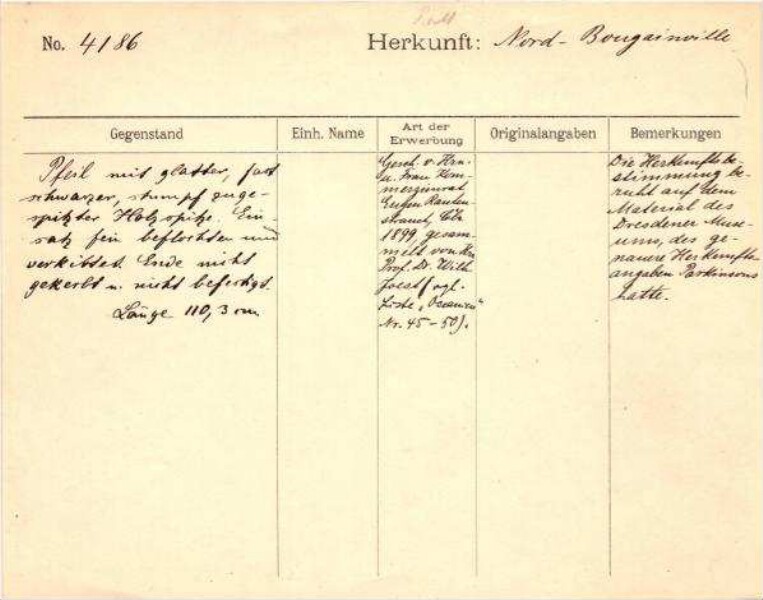 No. 4186
Herkunft: Nord-Bougainville
Gegenstand
Einh. Name
Art der Erwerbung
Originalangaben
Bemerkungen
Pfeil mit glatter, fast
schwarzer, stumpf zuge-
spitzter Holzspitze. Ein-
satz fein beflochten und
verkittet. Ende nicht
gekerbt u. nicht befestigt.
Länge 110,3 cm.
Gesch. v. Hrn.
u. Frau Kom-
merzienrat
Eugen Rauten-
strauch, Cöln
1899, gesam-
melt von Hrn
Prof. Dr. Wilh.
Joest (vgl.
Liste „Oceanien"
Nr. 45-50).
Die Herkunftsbe-
stimmung be-
ruht auf dem
Material des
Dresdener Muse-
ums, das ge-
nauere Herkunfts-
angaben Parkinsons
hatte.